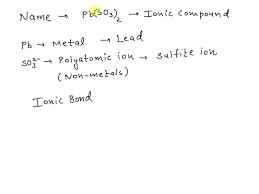 Name → Pb(SO₃)₂ → Ionic Compound
Pb → Metal → Lead
SO₃²⁻ → Polyatomic ion → Sulfite ion
(Non-metals)
Ionic Bond